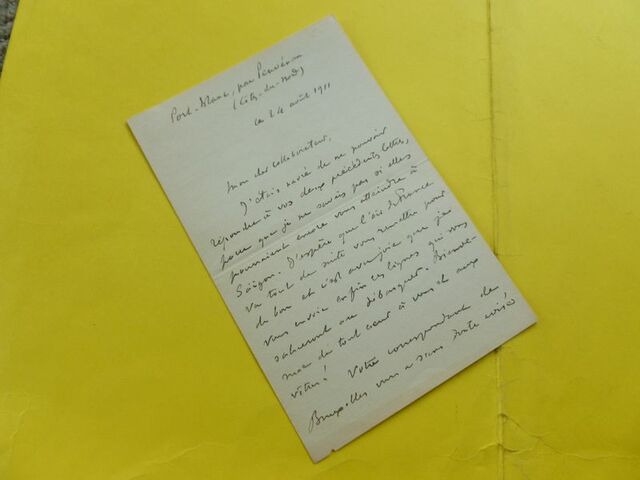 Port-Blanc, par Penvénan
(Côtes-du-Nord)
le 24 août 1911
Mon cher collaborateur,
J'étais navré de ne pouvoir
répondre à vos deux précédents lettres,
parce que je ne savais pas si elles
pourraient encore vous atteindre à
Saïgon. J'espère que l'air de France
va tout de suite vous remettre pour
de bon et c'est avec joie que je
vous envoie enfin ces lignes qui vous
salueront au débarquer. Bienve-
nue de tout cœur à vous et aux
vôtres! Votre correspondant de
Bruxelles vous a sans doute avisé